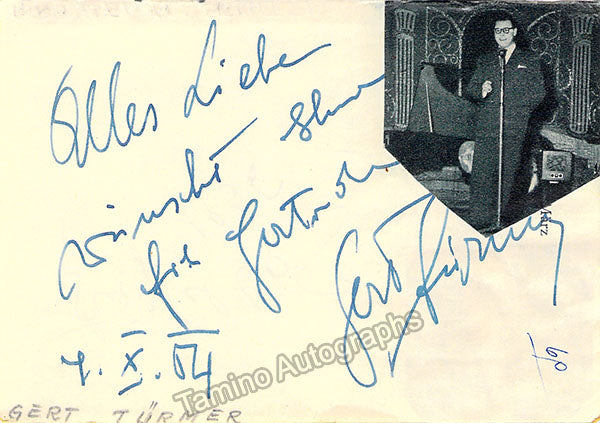 Alles Liebe
wünscht Ihnen
für
Gert Türmer
Harz
X. 64
Tamino Autographs
GERT TÜRMER